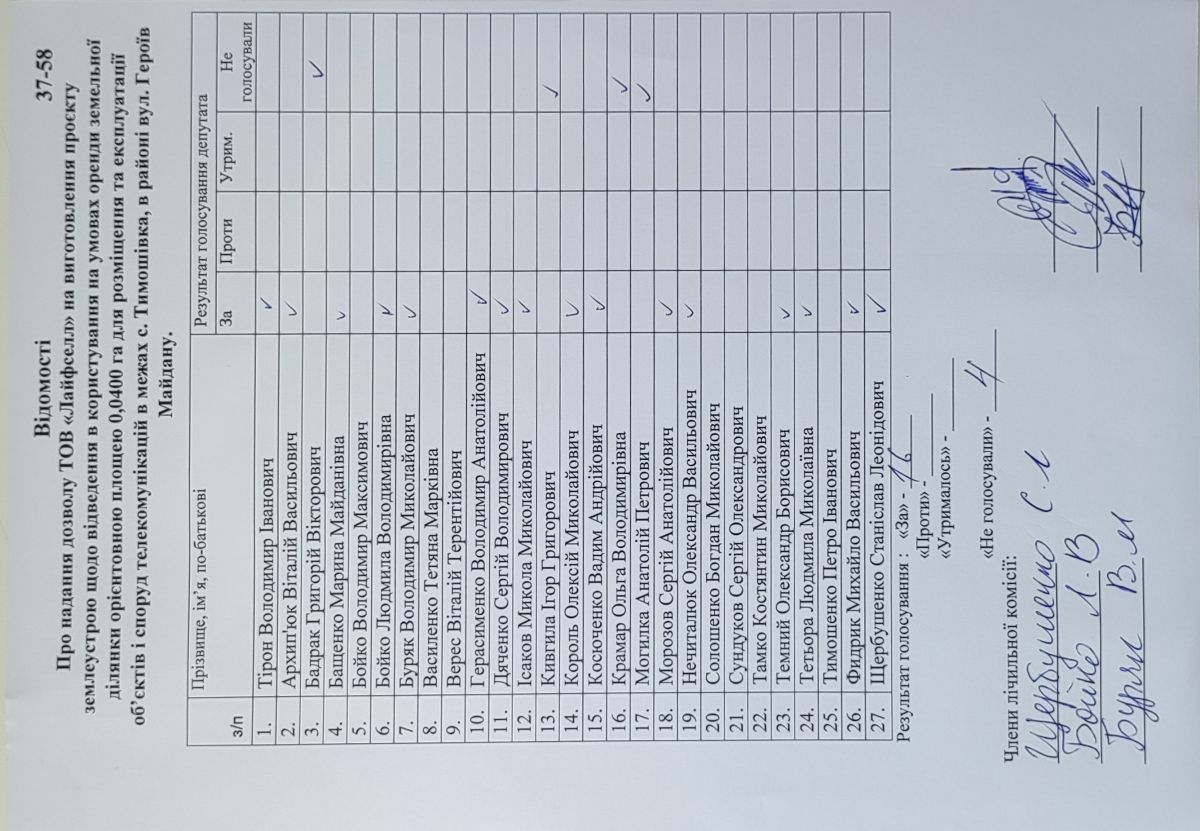 Відомості 37-58
Про надання дозволу ТОВ «Лайфселл» на виготовлення проєкту
землеустрою щодо відведення в користування на умовах оренди земельної
ділянки орієнтовною площею 0,0400 га для розміщення та експлуатації
об’єктів і споруд телекомунікацій в межах с. Тимошівка, в районі вул. Героїв
Майдану.
з/п Прізвище, ім’я, по-батькові Результат голосування депутата
За Проти Утрим. Не голосували
1. Тірон Володимир Іванович ✓
2. Архип'юк Віталій Васильович ✓
3. Бадрак Григорій Вікторович ✓
4. Ващенко Марина Майданівна ✓
5. Бойко Володимир Максимович
6. Бойко Людмила Володимирівна ✓
7. Буряк Володимир Миколайович ✓
8. Василенко Тетяна Марківна
9. Верес Віталій Терентійович
10. Герасименко Володимир Анатолійович ✓
11. Дяченко Сергій Володимирович ✓
12. Ісаков Микола Миколайович ✓
13. Кивгила Ігор Григорович ✓
14. Король Олексій Миколайович ✓
15. Косюченко Вадим Андрійович ✓
16. Крамар Ольга Володимирівна ✓
17. Могилка Анатолій Петрович ✓
18. Морозов Сергій Анатолійович ✓
19. Нечиталюк Олександр Васильович ✓
20. Солошенко Богдан Миколайович
21. Сундуков Сергій Олександрович
22. Тамко Костянтин Миколайович
23. Темний Олександр Борисович ✓
24. Тетьора Людмила Миколаївна ✓
25. Тимошенко Петро Іванович
26. Фидрик Михайло Васильович ✓
27. Щербушенко Станіслав Леонідович ✓
Результат голосування : «За» - 16
«Проти» -
«Утрималось» -
«Не голосували» - 4
Члени лічильної комісії:
Щербушенко С. Л
Бойко Л. В
Буряк В. М